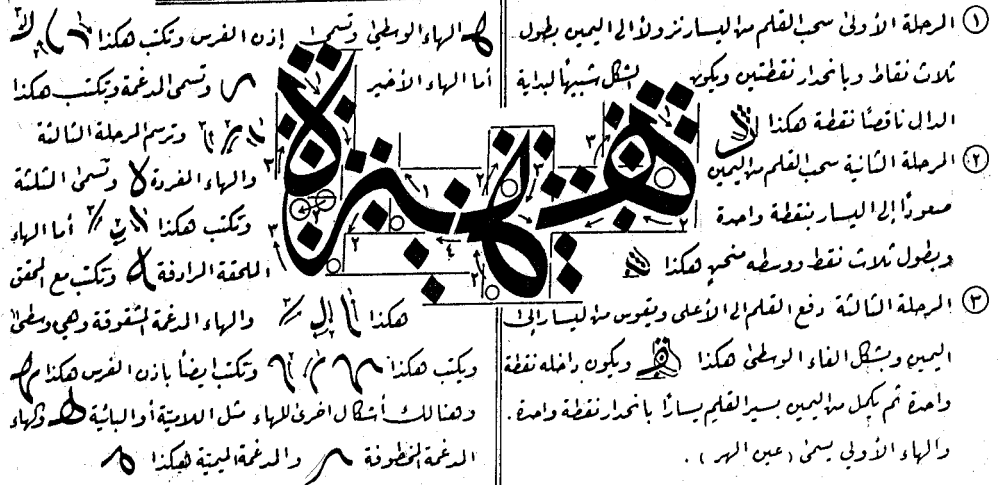 ① المرحلة الأولى سحب القلم من اليسار نزولاً الى اليمين بطول
ثلاث نقاط وبانحدار نقطتين ويكون الشكل شبيهاً لبداية
الدال ناقصاً نقطة هكذا
② المرحلة الثانية سحب القلم من اليمين
صعوداً إلى اليسار بنقطة واحدة
وبطول ثلاث نقط ووسطه منحنٍ هكذا
③ المرحلة الثالثة دفع القلم الى الأعلى ويقوس من اليسار إلى
اليمين وبشكل الفاء الوسطى هكذا ويكون داخله نقطة
واحدة ثم يكمل من اليمين بسير القلم يساراً بانحدار نقطة واحدة .
والهاء الأولى يسمى (عين الهر) .
الهاء الوسطى وتسمى إذن الفرس وتكتب هكذا
أما الهاء الأخير وتسمى المدغمة وتكتب هكذا
وترسم المرحلة الثالثة
والهاء المفردة ه وتسمى الثلثة
وتكتب هكذا أما الهاء
الملحقة الرادفة وتكتب مع المحقق
هكذا والهاء المدغمة المشقوقة وهي وسطى
ويكتب هكذا وتكتب ايضاً باذن الفرس هكذا
وهنالك أشكال اخرى للهاء مثل اللامية أو البائية والهاء
المدغمة المخطوفة والمدغمة الميمية هكذا